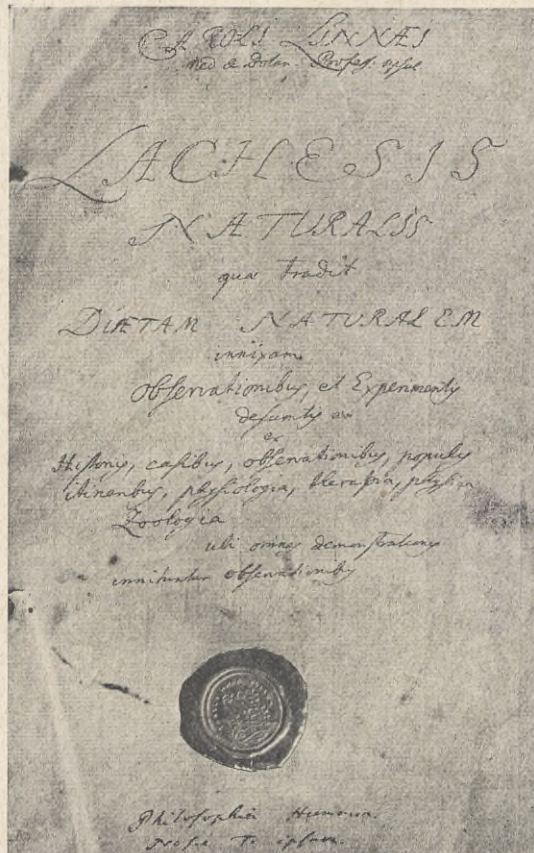 CAROLI LINNÆI
Med & Botan. Profeſs. Upſal
LACHESIS
NATURALIS
quæ tradit
DIÆTAM NATURALEM
innixam
Obſervationibus, et Experimentis
deſumtis
ex
Hiſtoriis, caſibus, obſervationibus, populis
itineribus, phyſiologia, therapia, phyſica
Zoologia
ubi omnes demonſtrationes
innituntur obſervationibus
Philoſophia Humana.
Noſſe T. ipſum.